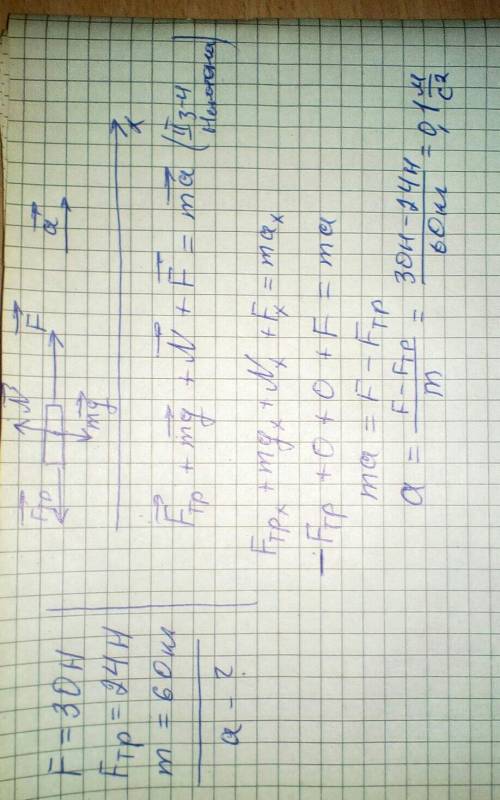 F = 30Н
Fтр = 24Н
m = 60кг
a - ?
Fтр N F a
mg
x
Fтр + mg + N + F = ma (II з-н Ньютона)
Fтрx + mgx + Nx + Fx = max
-Fтр + 0 + 0 + F = ma
ma = F - Fтр
a = F - Fтр / m = 30Н - 24Н / 60кг = 0,1 м/с²